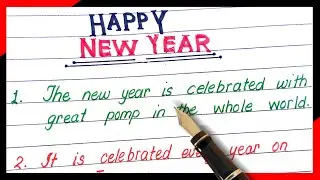 HAPPY
NEW YEAR
1. The new year is celebrated with
great pomp in the whole world.
2. It is celebrated every year on